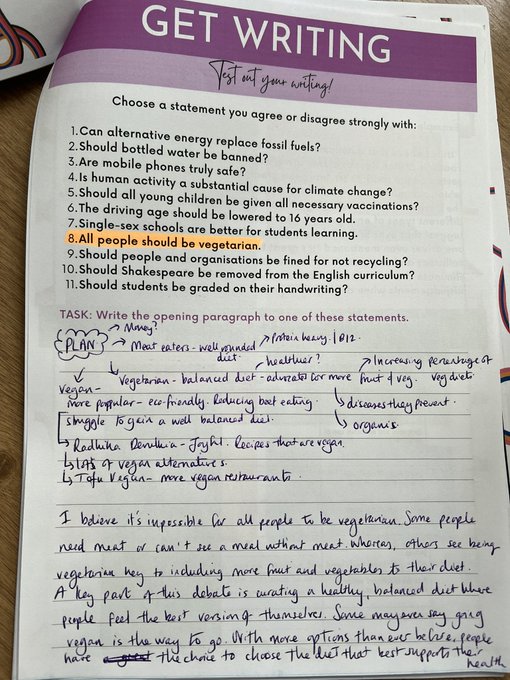 GET WRITING
Test out your writing!
Choose a statement you agree or disagree strongly with:
1.Can alternative energy replace fossil fuels?
2.Should bottled water be banned?
3.Are mobile phones truly safe?
4.Is human activity a substantial cause for climate change?
5.Should all young children be given all necessary vaccinations?
6.The driving age should be lowered to 16 years old.
7.Single-sex schools are better for students learning.
8.All people should be vegetarian.
9.Should people and organisations be fined for not recycling?
10.Should Shakespeare be removed from the English curriculum?
11.Should students be graded on their handwriting?
TASK: Write the opening paragraph to one of these statements.
PLAN
Money?
Meat eaters - well rounded diet.
Protein heavy. / B12
healthier?
Increasing percentage of veg diets.
Vegetarian - balanced diet - advocates for more fruit & veg.
vegan -
more popular - eco-friendly. Reducing beef eating.
diseases they prevent.
struggle to gain a well balanced diet.
organis
Radhika - Joyful. Recipes that are vegan.
lots of vegan alternatives.
Tofu Vegan - more vegan restaurants.
I believe it's impossible for all people to be vegetarian. Some people
need meat or can't see a meal without meat. Whereas, others see being
vegetarian key to including more fruit and vegetables to their diet.
A key part of this debate is curating a healthy, balanced diet where
people feel the best version of themselves. Some may even say going
vegan is the way to go. With more options than ever before, people
have the choice to choose the diet that best supports their
health